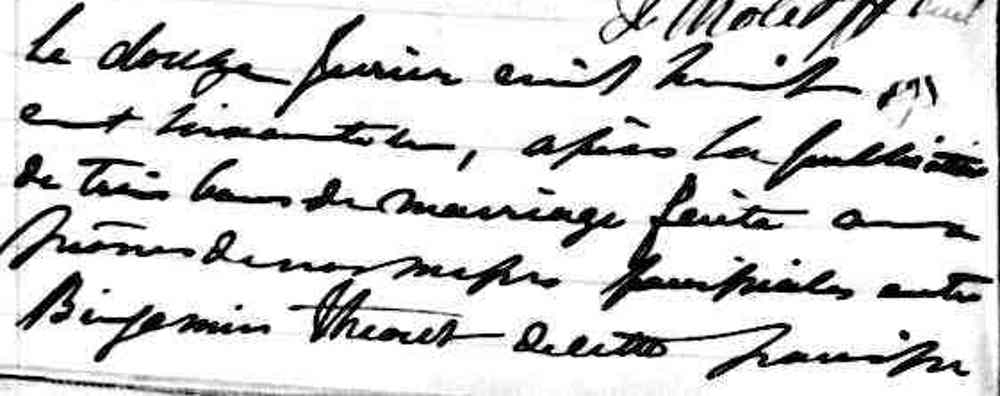 Le douze février mil huit
cent soixante , après la publication
de trois bans de mariage faite aux
prônes de nos messes paroissiales entre
Benjamin Theoret de cette paroisse